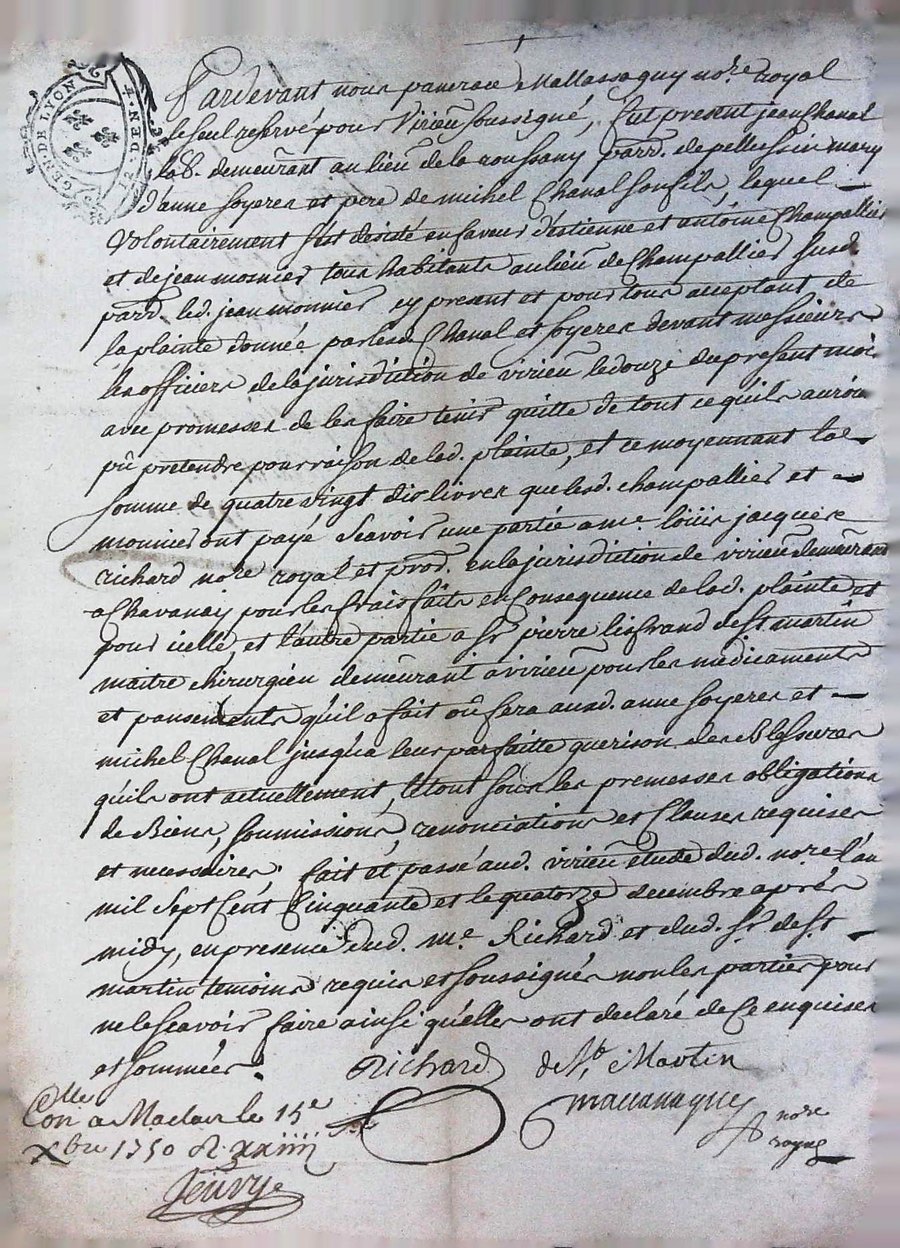 GEN. DE LYON
DEN. ET
Pardevant nous pancrace Mallassagny no.re royal
le seul reservé pour Virieu soussigné, fut present jean Chanal
lab. demeurant au lieu de la roussany parr. de pellussin mary
d'anne soyeres et pere de michel Chanal son fils, lequel
volontairement s'est desisté en faveur d'estienne et antoine Champallier
et de jean monnier tous habitants au lieu de Champallier susd.
parr. led. jean monnier cy present et pour tous acceptant, de
la plainte donnée par lesd. Chanal et soyeres devant messieurs
les officiers de la jurisdiction de virieu le douze du present mois
avec promesses de les faire tenir quitte de tout ce qu'ils auroient
pû pretendre pour raison de lad. plainte, et ce moyennant la
somme de quatre vingt dix livres que lesd. champallier et
monnier ont payé scavoir une partie a me. loüis jacques
richard no.re royal et pro.d. en la jurisdiction de virieu demeurant
a Chavanay pour les frais faits en consequence de lad. plainte et
pour icelle, et l'autre partie a Sr. pierre lisfrand de St martin
maitre chirurgien demeurant a virieu pour les medicaments
et pansements qu'il a fait ou fera auxd. anne soyeres et
michel Chanal jusqu'a leur parfaitte guerison des blessures
qu'ils ont actuellement, le tout sous les promesses obligations
de Biens, soumissions, renonciations et Clauses requises
et necessaires. fait et passé aud. virieu étude dud. no.re l'an
mil sept Cent Cinquante et le quatorze decembre aprés
midy, en presence dud. me. Richard et dud. Sr. de St
martin temoins requis et soussignés non les parties pour
ne le scavoir faire ainsi qu'elles ont declaré de ce enquises
et sommées.
Richard de St. Martin
Con.lle a Maclas le 15e mallassagny no.re royal
Xbre 1750 R. xxiiii s
Jeuvye